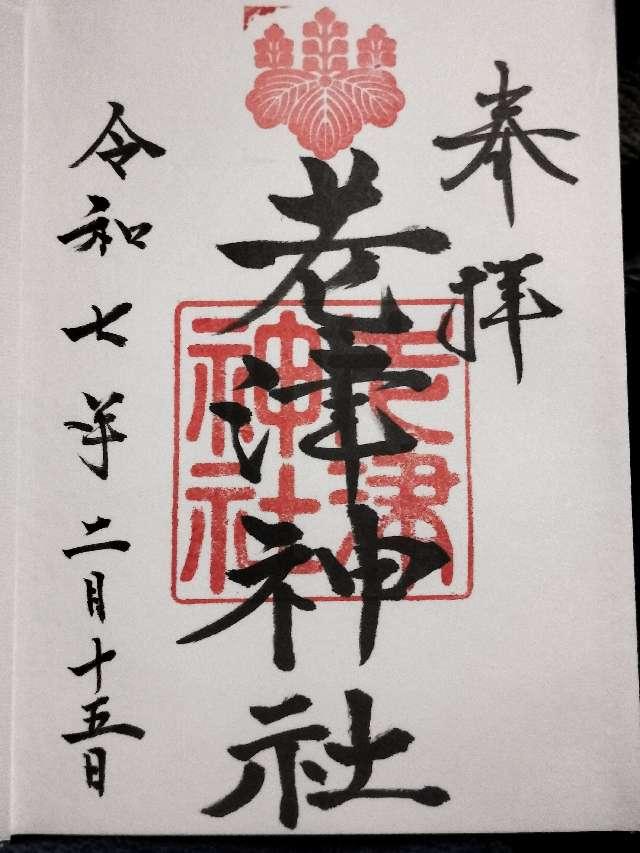 奉拝
老津神社
老津神社
令和七年二月十五日